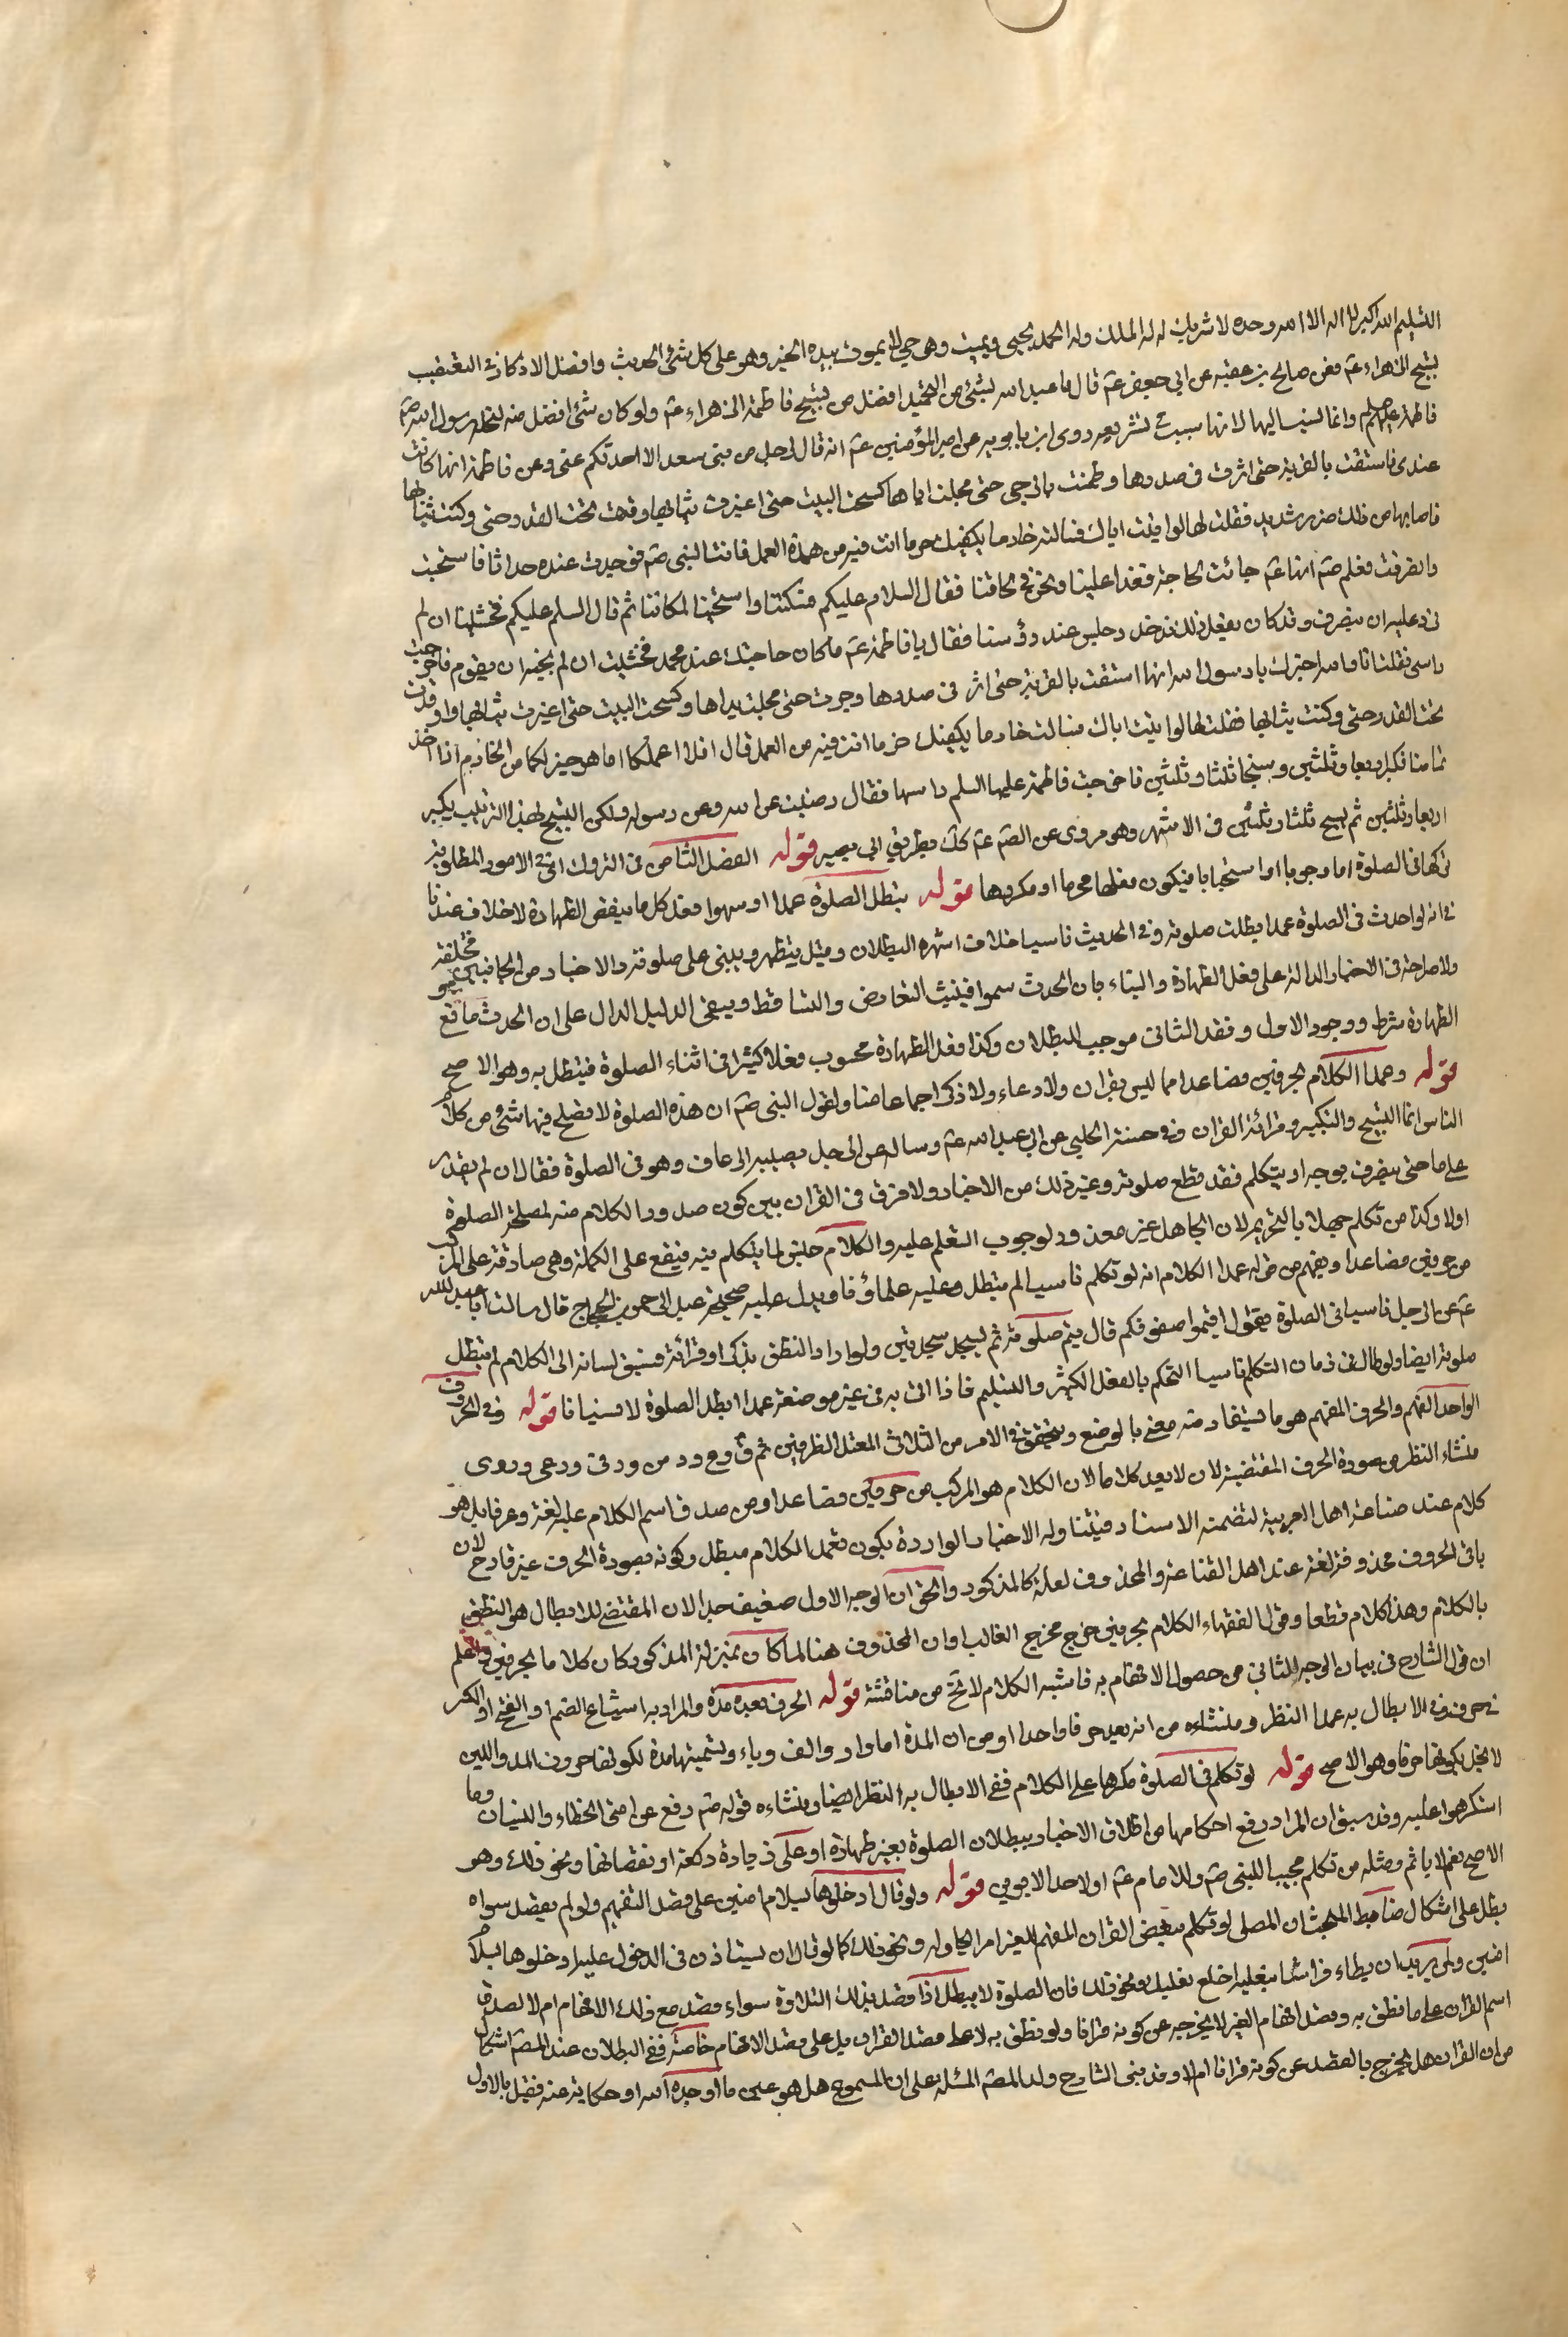 التسليم الله اكبر لا اله الا الله وحده لا شريك له له الملك وله الحمد يحيى ويميت وهى حي لا يموت بيده الخير وهو على كل شئ الحديث وافضل الاذكار في التعقيب
تسبيح الزهراء عم فعن صالح بن عقبه عن ابي جعفر عم قال ما عبد الله بشئ من التحميد افضل من تسبيح فاطمة الزهراء عم ولو كان شئ افضل منه لنحله رسول الله صم
فاطمة عليها السلم وانما لنسب اليها لانها سبب تشريعه روى ابن بابويه عن امير المؤمنين عم انه قال لرجل من بنى سعد الا احدثكم عنى وعن فاطمة انها كانت
عندى فاستقت بالقربة حتى اثرت في صدرها وطحنت بالرحى حتى مجلت يداها وكسحت البيت حتى اغبرت ثيابها واوقدت تحت القدر حتى دكنت ثيابها
فاصابها من ذلك ضرر شديد فقلت لها لو اتيت اباك فسالته خادما يكفيك حر ما انت فيه من هذا العمل فاتت النبى صم فوجدت عنده حداثا فاستحيت
وانصرفت فعلم صم انها عم جائت لحاجة فغدا علينا ونحن في لحافنا فقال السلام عليكم فسكتنا واستحيينا لمكاننا ثم قال السلم عليكم فخشينا ان لم
نرد عليه ان ينصرف وقد كان يفعل ذلك فدخل وجلس عند رؤسنا فقال يا فاطمة عم ما كان حاجتك عند محمد فخشيت ان لم نجبه ان يقوم فاخرجت
راسى فقلت انا والله اخبرك يا رسول الله انها استقت بالقربة حتى اثر في صدرها وجرت حتى مجلت يداها وكسحت البيت حتى اغبرت ثيابها واوقدت
تحت القدر حتى دكنت ثيابها فقلت لها لو اتيت اباك فسالته خادما يكفيك حر ما انت فيه من العمل قال افلا اعلمكما ما هو خير لكما من الخادم اذا اخذ
تما منامكما فكبرا اربعا وثلثين وسبحا ثلثا وثلثين فاخرجت فاطمة عليها السلم راسها فقال رضيت عن الله وعن رسوله ولكن التسبيح بهذا الترتيب يكبر
اربعا وثلثين ثم يسبح ثلثا وثلثين في الاشهر وهو مروى عن الصم عم بطريق ابي بصير قوله الفصل الثامن في التروك اى في الامور المطلوبة
تركها في الصلوة اما وجوبا او استحبابا فيكون فعلها محرما او مكروها قوله يبطل الصلوة عمدا او سهوا فعل كل ما ينقض الطهارة لا خلاف عندنا
في انه لو احدث في الصلوة عمدا بطلت صلوته وفي الحديث ناسيا خلاف اشهره البطلان وقيل يتطهر ويبنى على صلوته والاخبار من الجانبين مختلفة
ولا صراحة في الاخبار الدالة على فعل الطهارة والبناء بان الحدث سهوا فيثبت التعارض والتساقط ويبقى الدليل الدال على ان الحدث مانع
الطهارة شرط ووجود الاول وفقد الثانى موجب للبطلان وكذا فعل الطهارة محسوب فعلا كثيرا في اثناء الصلوة فيبطل به وهو الاصح
قوله وعمدا الكلام بحرفين فصاعدا مما ليس بقران ولا دعاء ولا ذكر اجماعا منا ولقول النبى صم ان هذه الصلوة لا يصلح فيها شئ من كلام
الناس انما التسبيح والتكبير وقرائة القران وفي حسنة الحلبى عن ابى عبد الله عم وساله عن الرجل يصيبه الرعاف وهو في الصلوة فقال ان لم يقدر
على ما حتى ينصرف بوجهه او يتكلم فقد قطع صلوته وغير ذلك من الاخبار ولا فرق في القران بين كون صدور الكلام منه لمصلحة الصلوة
اولا وكذا من تكلم جهلا بالتحريم لان الجاهل غير معذور لوجوب التعلم عليه والكلام جنس لما يتكلم فيه فيقع على الكلمة وهى صادقة على المركب
من حرفين فصاعدا ويفهم من قوله عمدا الكلام انه لو تكلم ناسيا لم يبطل وعليه علماؤنا ويدل عليه صحيحة عبد الرحمن بن الحجاج قال سالت ابا عبد الله
عم عن الرجل ناسيا في الصلوة يقول اقيموا صفوفكم قال يتم صلوته ثم يسجد سجدتين ولو اراد النطق بذكر او قرائة فسبق لسانه الى الكلام لم يبطل
صلوته ايضا ولو طال في زمان التكلم ناسيا التحكم بالفعل الكثير والتسليم فاذا اتى به في غير موضعه عمدا ابطل الصلوة لا نسيانا قوله وفي الحرف
الواحد المفهم والحرف المفهم هو ما يستفاد منه معنى بالوضع ويتحقق في الامر من الثلاثى المعتل الطرفين نحو ق و ع و د من وقى ووعى وودى
منشاء النظر من صورة الحرف المقتضية لان لا يعد كلاما لان الكلام هو المركب من حرفين فصاعدا ومن صدق اسم الكلام عليه لغة وعرفا بل هو
كلام عند صناعة اهل العربية لتضمنه الاسناد فيتناوله الاخبار الواردة بكون تعمد الكلام مبطل وكونه بصورة الحرف غير قادح لان
باقى الحروف محذوفة لغة عند اهل الصناعة والمحذوف لعلة كالمذكور والحق ان الوجه الاول ضعيف جدا لان المقتضى للابطال هو النطق
بالكلام وهذا كلام قطعا وقول الفقهاء الكلام بحرفين خرج مخرج الغالب او ان المحذوف هنا لما كان بمنزلة المذكور كان كلاما بحرفين واعلم
ان قول الشارح في بيان الوجه الثانى من حصول الافهام به فاشبه الكلام لا يخ من مناقشة قوله الحرف بعده مدة والمراد به اشباع الضم او الفتح او الكسر
في حرف في الابطال به عمدا النظر ومنشاءه من انه يعد حرفا واحدا او من ان المدة اما واو والف وياء وتسميتها مدة لكونها حروف المد واللين
لا يخل بكونها حرفا وهو الاصح قوله لو تكلم في الصلوة مكرها على الكلام ففى الابطال به النظر ايضا ومنشاءه قوله صم رفع عن امتى الخطاء والنسيان وما
استكرهوا عليه وقد سبق ان المراد رفع احكامها من اطلاق الاخبار ببطلان الصلوة بغير طهارة او على زيادة ركعة او نقصانها ونحو ذلك وهو
الاصح نعم لا ياثم ومثله من تكلم مجيبا للنبى صم وللامام عم او لاحد الابوين قوله ولو قال ادخلوها بسلام امنين على قصد التفهيم ولو لم يقصد سواه
بطل على اشكال ضابط المبحث ان المصلى لو تكلم ببعض القران المفهم للغير امرا يحاوله ونحو ذلك كما لو قال لان يستاذن في الدخول عليه ادخلوها بسلام
امنين ولمن يريد ان يطاء فراشا بنعليه اخلع نعليك ونحو ذلك فان الصلوة لا يبطل اذا قصد بذلك التلاوة سواء قصد مع ذلك الافهام ام لا لصدق
اسم القران على ما نطق به وقصد افهام الغير لا يخرجه عن كونه قرانا ولو نطق به لا على قصد القران بل على قصد الافهام خاصة ففى البطلان عند المصم اشكال
من ان القران هل يخرج بالقصد عن كونه قرانا ام لا وقد بنى الشارح ولد المصم المسئلة على ان المسموع هل هو عين ما اوجده الله او حكاية عنه فقيل بالاول